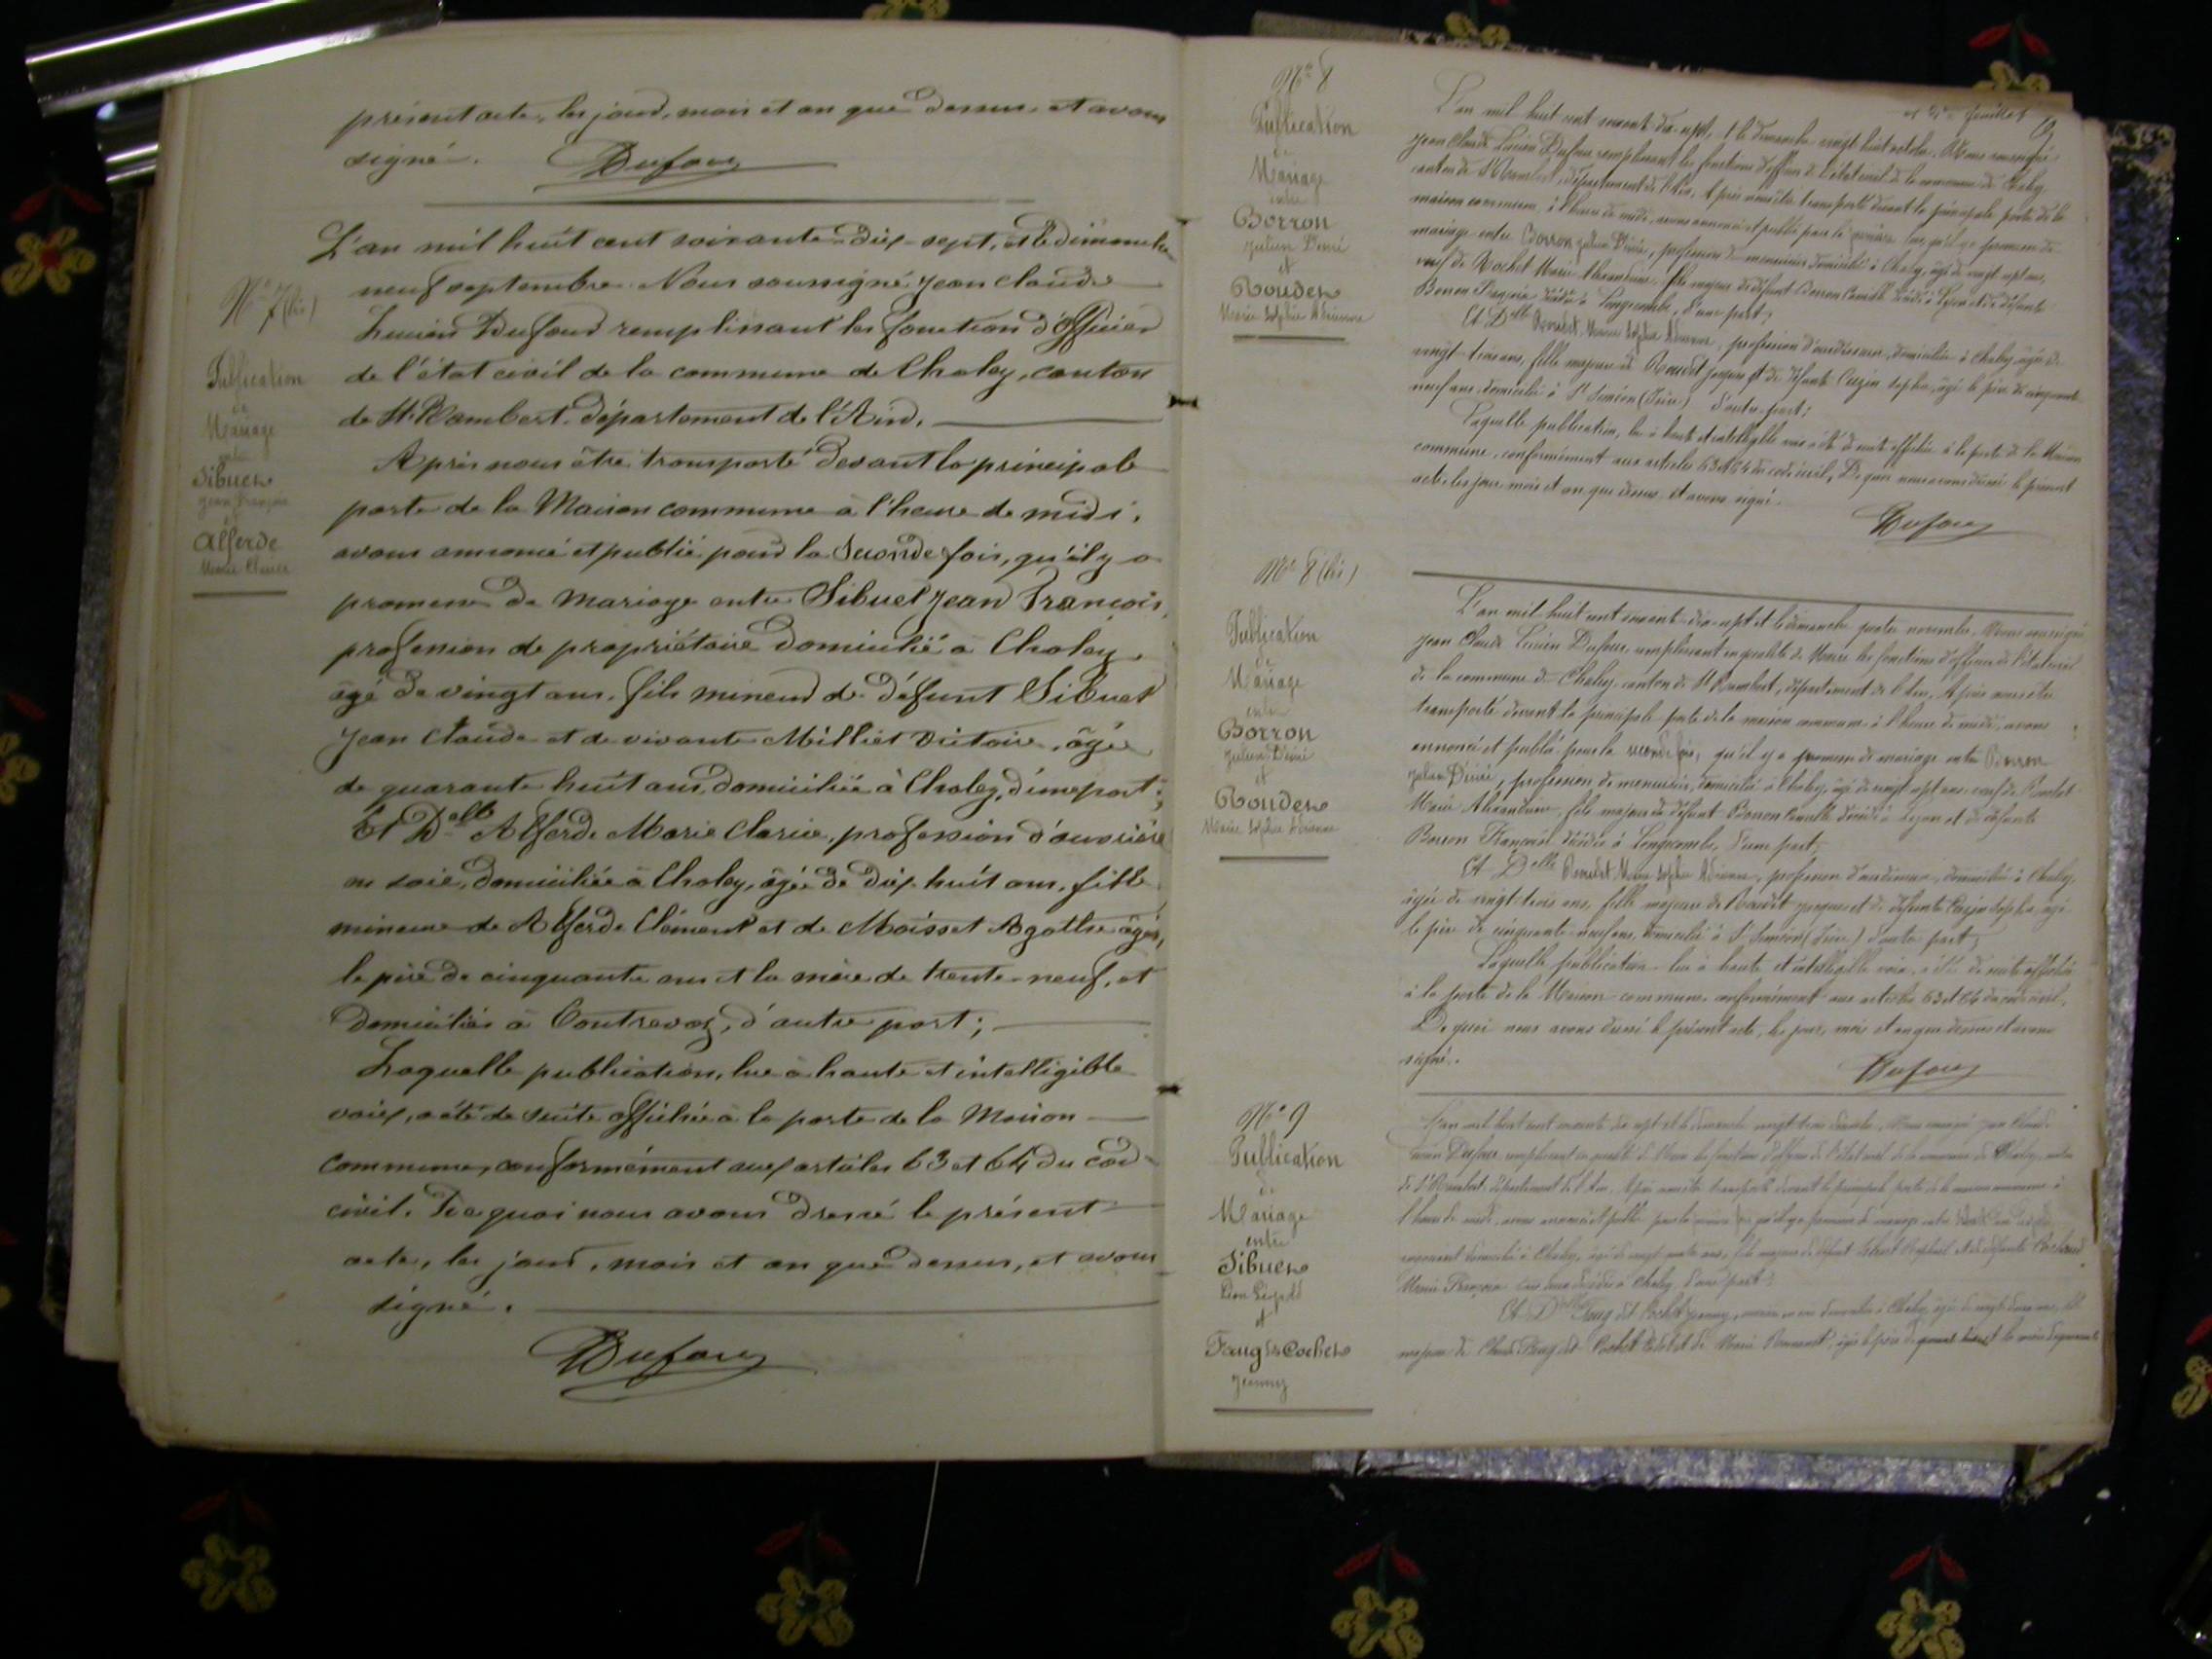 présent acte, les jour, mois et an que dessus, et avons
signé. Dufour
N° 7 (bis)
Publication
de
Mariage
entre
Sibuet
Jean François
et
Alferde
Marie Clarice
L'an mil huit cent soixante-dix-sept, et le dimanche
neuf septembre. Nous soussigné Jean Claude
Lucien Dufour remplissant les fonction d'officier
de l'état civil de la commune de Chaley, canton
de St Rambert, département de l'Ain.
Après nous être transporté devant la principale
porte de la Maison commune à l'heure de midi,
avons annoncé et publié pour la Seconde fois, qu'il y a
promesse de mariage entre Sibuet Jean François,
profession de propriétaire domicilié à Chaley,
âgé de vingt ans, fils mineur de défunt Sibuet
Jean Claude et de vivante Milliet Victoire, âgée
de quarante huit ans, domiciliée à Chaley, d'une part;
Et Delle Alferde Marie Clarice, profession d'ouvrière
en soie, domiciliée à Chaley, âgée de dix-huit ans, fille
mineure de Alferde Clément et de Moisset Agathe âgés,
le père de cinquante ans et la mère de trente-neuf, et
domiciliés à Contrevoz, d'autre part;
Laquelle publication, lue à haute et intelligible
voix, a été de suite affichée à la porte de la Maison
commune, conformément aux articles 63 et 64 du code
civil. De quoi nous avons dressé le présent
acte, les jour, mois et an que dessus, et avons
signé.
Dufour
et 4e feuillet
N° 8
Publication
de
Mariage
entre
Borron
Julien Désiré
et
Roudet
Marie Sophie Adrienne
L'an mil huit cent soixante-dix-sept, et le dimanche vingt huit octobre. Nous soussigné
Jean Claude Lucien Dufour remplissant les fonctions d'officier de l'état civil de la commune de Chaley,
canton de St Rambert, département de l'Ain. Après nous être transporté devant la principale porte de la
maison commune à l'heure de midi, avons annoncé et publié pour la première fois, qu'il y a promesse de
mariage entre Borron Julien Désiré, profession de menuisier domicilié à Chaley, âgé de vingt sept ans,
veuf de Rochet Marie Alexandrine, fils majeur de défunt Borron Camille décédé à Lyon et de défunte
Borron Françoise décédée à Longecombe, d'une part;
Et Delle Roudet Marie Sophie Adrienne, profession d'ourdisseuse, domiciliée à Chaley, âgée de
vingt-trois ans, fille majeure de Roudet Jacques et de défunte Cuzin Sophie, âgé le père de cinquante
neuf ans, domicilié à St Siméon (Isère) d'autre part;
Laquelle publication, lue à haute et intelligible voix a été de suite affichée à la porte de la Maison
commune, conformément aux articles 63 et 64 du code civil. De quoi nous avons dressé le présent
acte, les jour, mois et an que dessus et avons signé.
Dufour
N° 8 (bis)
Publication
de
Mariage
entre
Borron
Julien Désiré
et
Roudet
Marie Sophie Adrienne
L'an mil huit cent soixante-dix-sept et le dimanche quatre novembre. Nous soussigné
Jean Claude Lucien Dufour, remplissant en qualité de Maire les fonctions d'officier de l'état civil
de la commune de Chaley, canton de St Rambert, département de l'Ain. Après nous être
transporté devant la principale porte de la maison commune à l'heure de midi, avons
annoncé et publié pour la seconde fois, qu'il y a promesse de mariage entre Borron
Julien Désiré, profession de menuisier, domicilié à Chaley, âgé de vingt sept ans, veuf de Rochet
Marie Alexandrine, fils majeur de défunt Borron Camille décédé à Lyon et de défunte
Borron Françoise décédée à Longecombe, d'une part;
Et Delle Roudet Marie Sophie Adrienne, profession d'ourdisseuse, domiciliée à Chaley,
âgée de vingt-trois ans, fille majeure de Roudet Jacques et de défunte Cuzin Sophie, âgé
le père de cinquante-neuf ans, domicilié à St Siméon (Isère) d'autre part;
Laquelle publication lue à haute et intelligible voix, a été de suite affichée
à la porte de la Maison commune, conformément aux articles 63 et 64 du code civil.
De quoi nous avons dressé le présent acte, les jour, mois et an que dessus et avons
signé.
Dufour
N° 9
Publication
de
Mariage
entre
Sibuet
Léon Léopold
et
Faug dit Cochet
Jeanny
L'an mil huit cent soixante dix sept et le dimanche vingt trois décembre, Nous soussigné Jean Claude
Lucien Dufour remplissant en qualité de Maire les fonctions d'officier de l'état civil de la commune de Chaley, canton
de St Rambert, département de l'Ain. Après nous être transporté devant la principale porte de la maison commune à
l'heure de midi, avons annoncé et publié pour la première fois qu'il y a promesse de mariage entre Sibuet Léon Léopold
domicilié à Chaley, âgé de vingt quatre ans, fils majeur de défunt Sibuet et de défunte
Marie Françoise tous deux décédés à Chaley, d'une part;
Et Delle Faug dit Cochet Jeanny, domiciliée à Chaley, âgée de vingt ans, fille
majeure de Claude Faug dit Cochet et de Marie âgés le père de et la mère de quarante